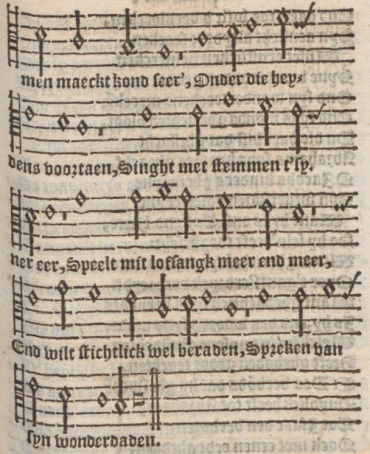 men maeckt kond seer', Onder die hey-
dens voortaen, Singht met stemmen t'sy.
ner eer, Speelt mit lofsangk meer end meer,
End wilt stichtlick wel beraden, Spreken van
syn wonderdaden.